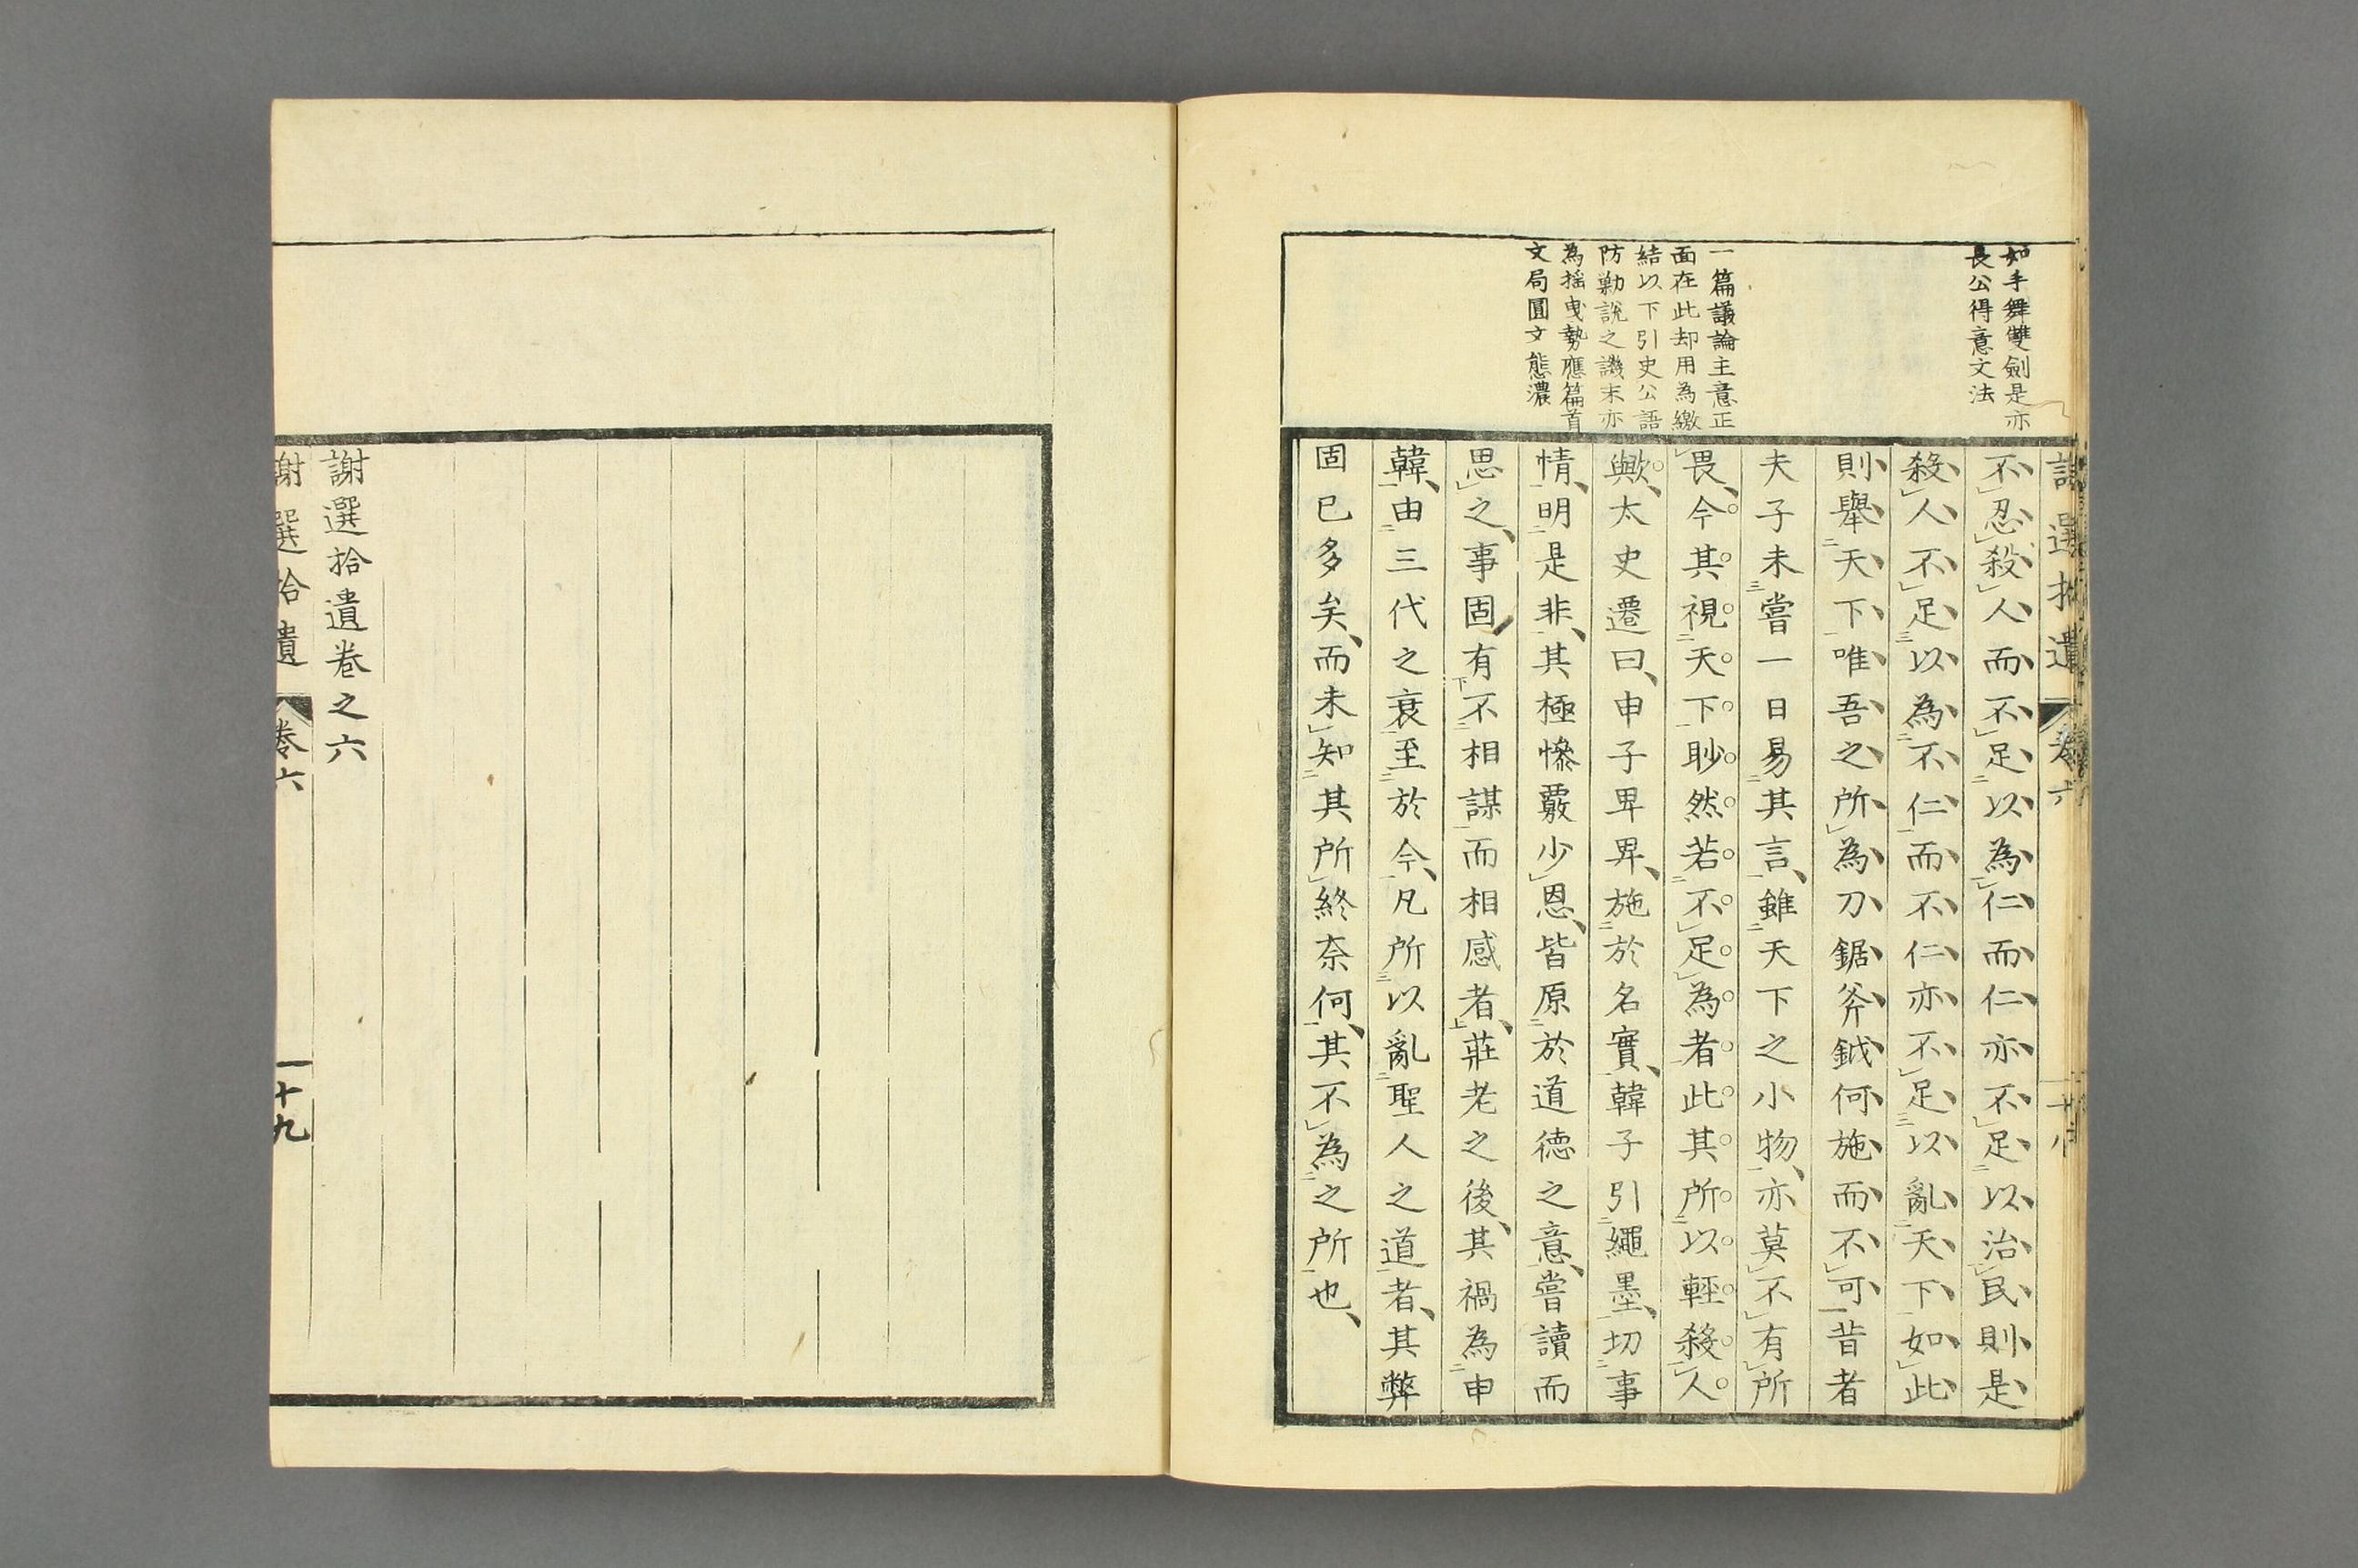 如手舞雙劍是亦
長公得意文法
一篇議論主意正
面在此却用為繳
結以下引史公語
防勦說之譏末亦
為搖曳勢應篇首
文局圓文態濃
不忍殺人而不足以為仁而仁亦不足以治民則是
殺人不足以為不仁而不仁亦不足以亂天下如此
則舉天下唯吾之所為刀鋸斧鉞何施而不可昔者
夫子未嘗一日易其言雖天下之小物亦莫不有所
畏今其視天下眇然若不足為者此其所以輕殺人
歟太史遷曰申子卑卑施於名實韓子引繩墨切事
情明是非其極慘覈少恩皆原於道德之意嘗讀而
思之事固有不相謀而相感者莊老之後其禍為申
韓由三代之衰至於今凡所以亂聖人之道者其弊
固已多矣而未知其所終奈何其不為之所也
謝選拾遺卷之六
謝選拾遺 卷六 十九